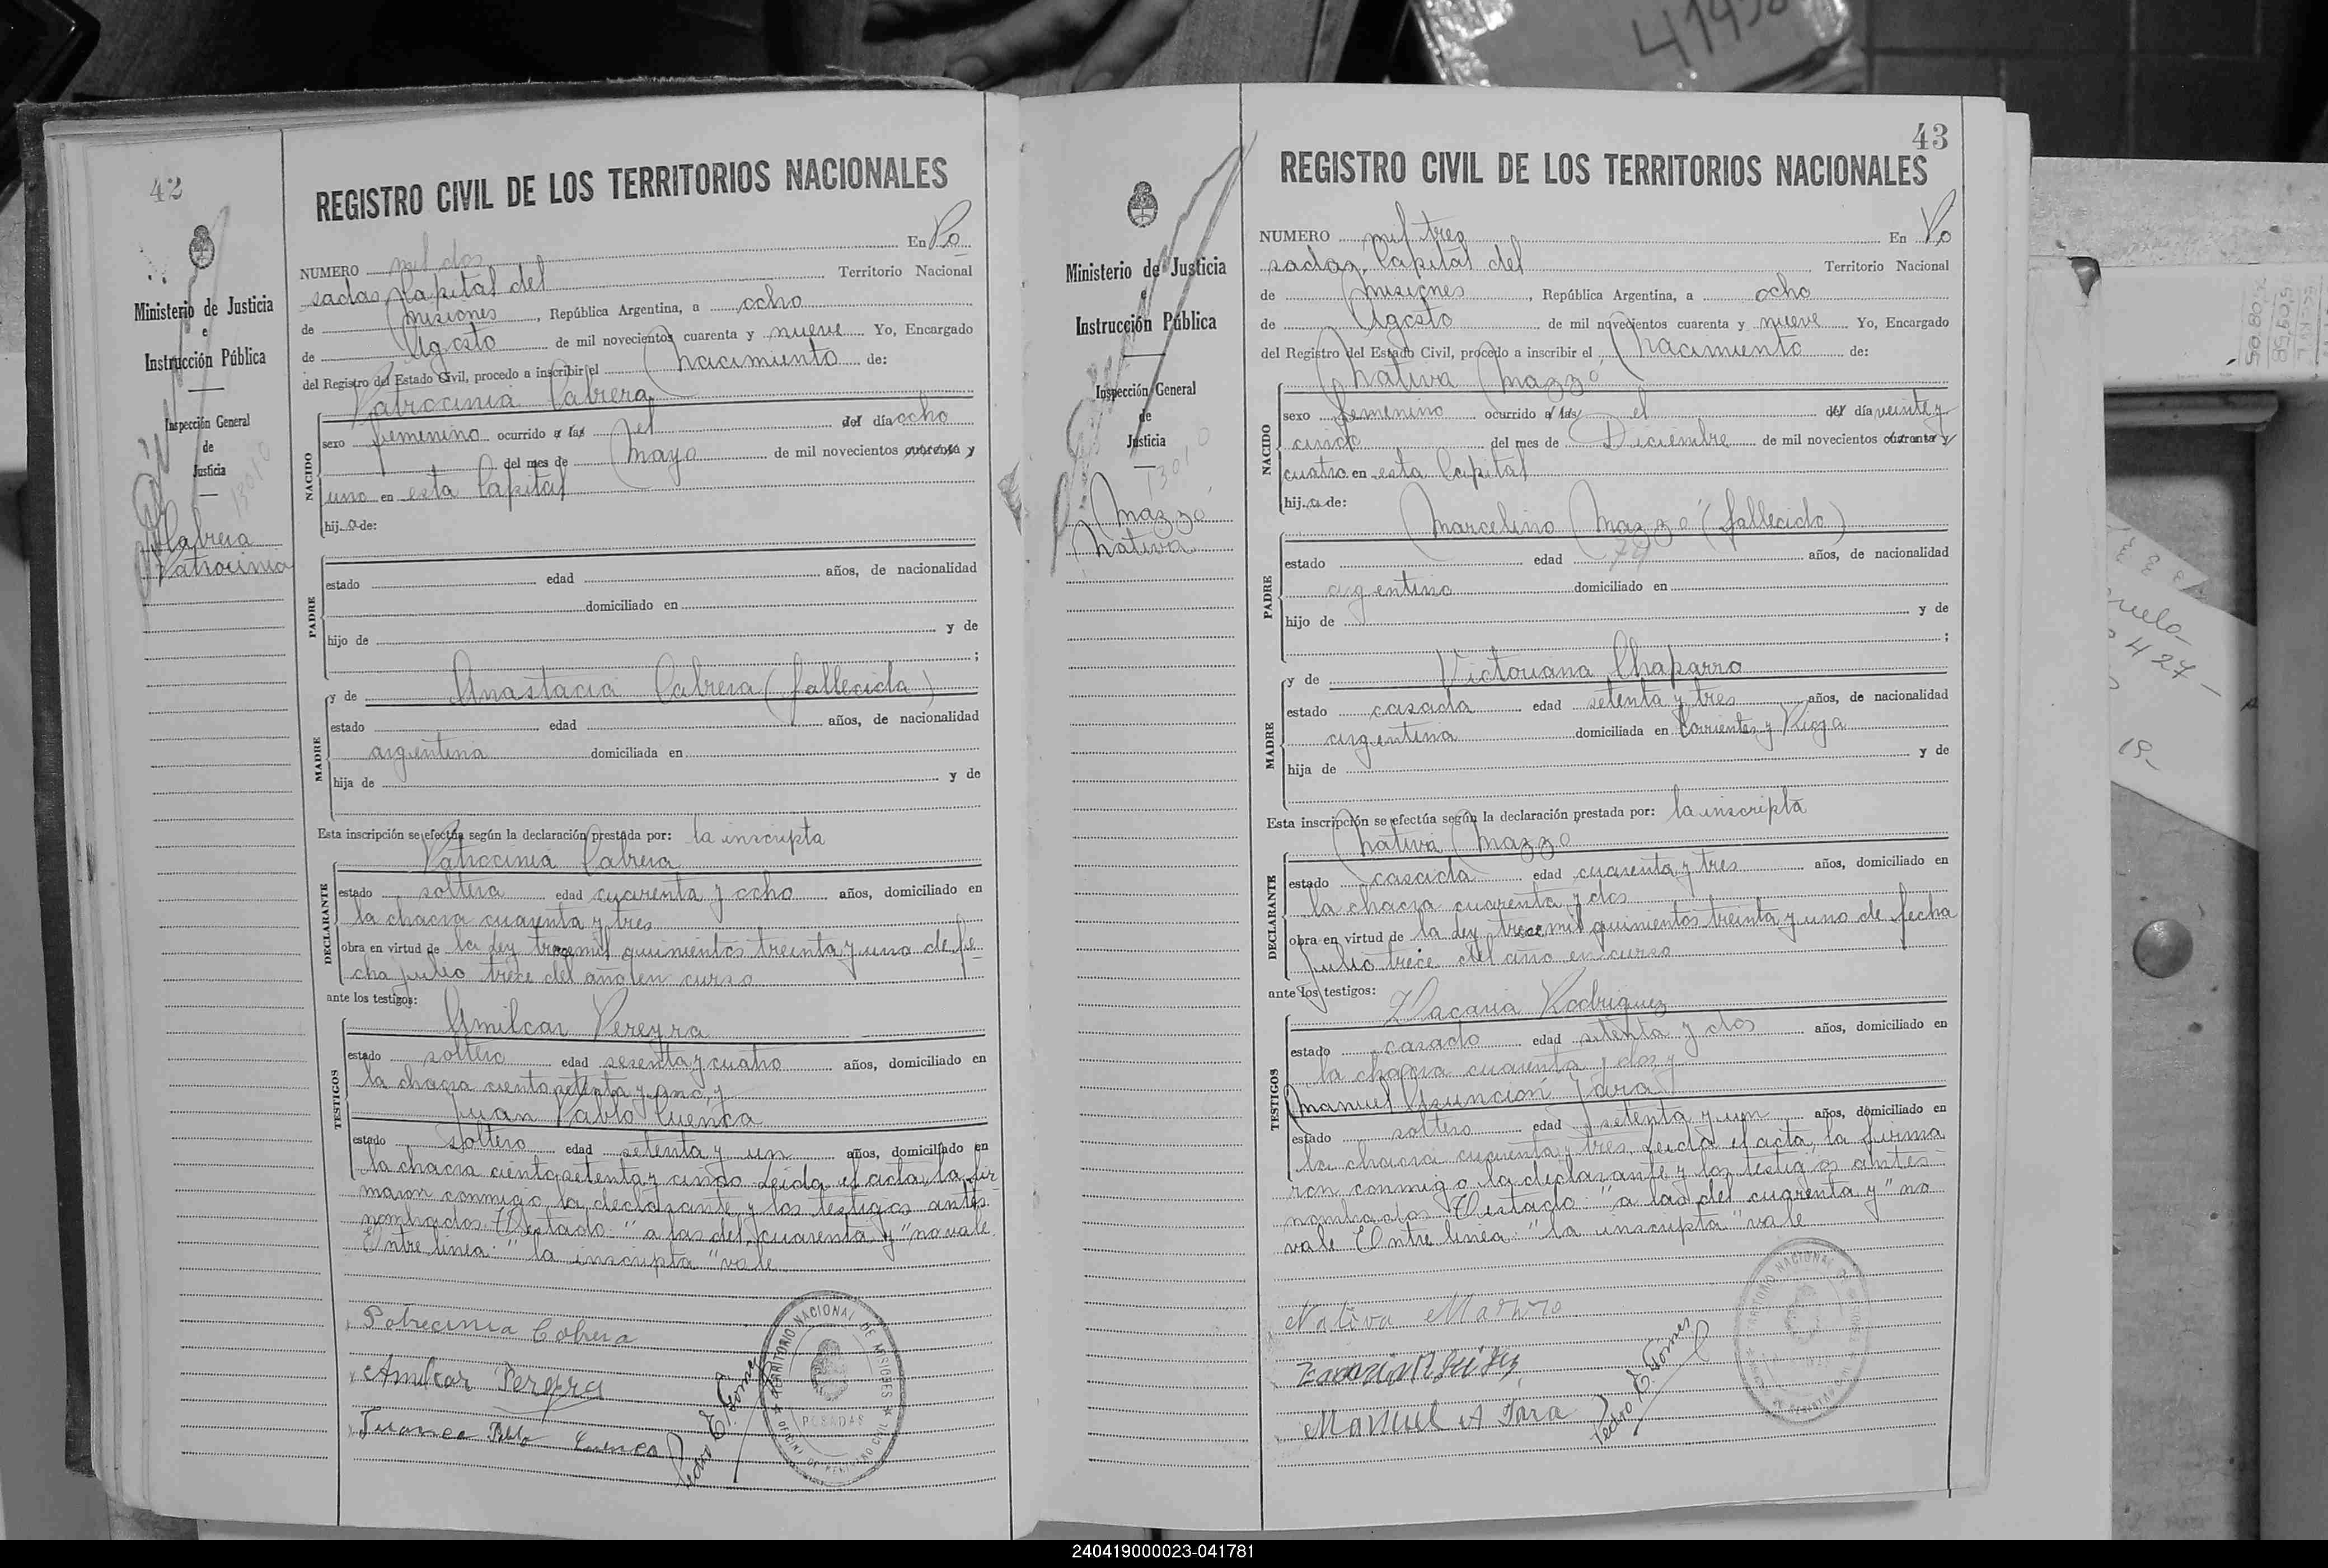 42
Ministerio de Justicia
e
Instrucción Pública
Inspección General
de
Justicia
13010
Cabrera
Patrocinia
REGISTRO CIVIL DE LOS TERRITORIOS NACIONALES
NUMERO mil dos En Po
sadas, Capital del Territorio Nacional
de Misiones, República Argentina, a ocho
de Agosto de mil novecientos cuarenta y nueve Yo, Encargado
del Registro del Estado Civil, procedo a inscribir el Nacimiento de:
Patrocinia Cabrera
NACIDO
sexo femenino ocurrido a las el del día ocho
del mes de Mayo de mil novecientos cuarenta y
uno en esta Capital
hija de:
PADRE
estado edad años, de nacionalidad
domiciliado en
hijo de y de
;
MADRE
y de Anastacia Cabrera (fallecida)
estado edad años, de nacionalidad
argentina domiciliada en
hija de y de
Esta inscripción se efectúa según la declaración prestada por: la inscripta
DECLARANTE
Patrocinia Cabrera
estado soltera edad cuarenta y ocho años, domiciliado en
la chacra cuarenta y tres
obra en virtud de la ley trece mil quinientos treinta y uno de fe
cha julio trece del año en curso
ante los testigos:
TESTIGOS
Amilcar Pereyra
estado soltero edad sesenta y cuatro años, domiciliado en
la chacra ciento setenta y uno, y
Juan Pablo Cuenca
estado soltero edad setenta y un años, domiciliado en
la chacra ciento setenta y cinco. Leida el acta, la fir
maron conmigo la declarante y los testigos antes
nombrados. Testado: "a las del cuarenta y" no vale.
Entre linea: "la inscripta" vale
Potrecinia Cobrera
Amilcar Pereyra
Juanca Pablo Cuenca
Pedro E. Gomez
TERRITORIO NACIONAL DE MISIONES
POSADAS
OFICINA DE REGISTRO CIVIL
43
Ministerio de Justicia
e
Instrucción Pública
Inspección General
de
Justicia
13010
Mazzó
Nativa
REGISTRO CIVIL DE LOS TERRITORIOS NACIONALES
NUMERO mil tres En Po
sadas, Capital del Territorio Nacional
de Misiones, República Argentina, a ocho
de Agosto de mil novecientos cuarenta y nueve Yo, Encargado
del Registro del Estado Civil, procedo a inscribir el Nacimiento de:
Nativa Mazzó
NACIDO
sexo femenino ocurrido a las el del día veinte y
cinco del mes de Diciembre de mil novecientos cuarenta y
cuatro en esta Capital
hija de:
PADRE
Marcelino Mazzó (fallecido)
estado edad 74 años, de nacionalidad
argentino domiciliado en
hijo de y de
;
MADRE
y de Victoriana Chaparro
estado casada edad setenta y tres años, de nacionalidad
argentina domiciliada en Corrientes y Rioja
hija de y de
Esta inscripción se efectúa según la declaración prestada por: la inscripta
DECLARANTE
Nativa Mazzó
estado casada edad cuarenta y tres años, domiciliado en
la chacra cuarenta y dos
obra en virtud de la ley trece mil quinientos treinta y uno de fecha
julio trece del año en curso
ante los testigos:
TESTIGOS
Zacaria Rodriguez
estado casado edad setenta y dos años, domiciliado en
la chacra cuarenta y dos y
Manuel Asunción Jara
estado soltero edad setenta y un años, domiciliado en
la chacra cuarenta y tres. Leida el acta, la firma
ron conmigo la declarante y los testigos antes
nombrados. Testado: "a las del cuarenta y" no
vale Entre linea: "la inscripta" vale
Nativa
Manuel A Jara
Pedro E. Gomez
TERRITORIO NACIONAL
427
19-
240419000023-041781